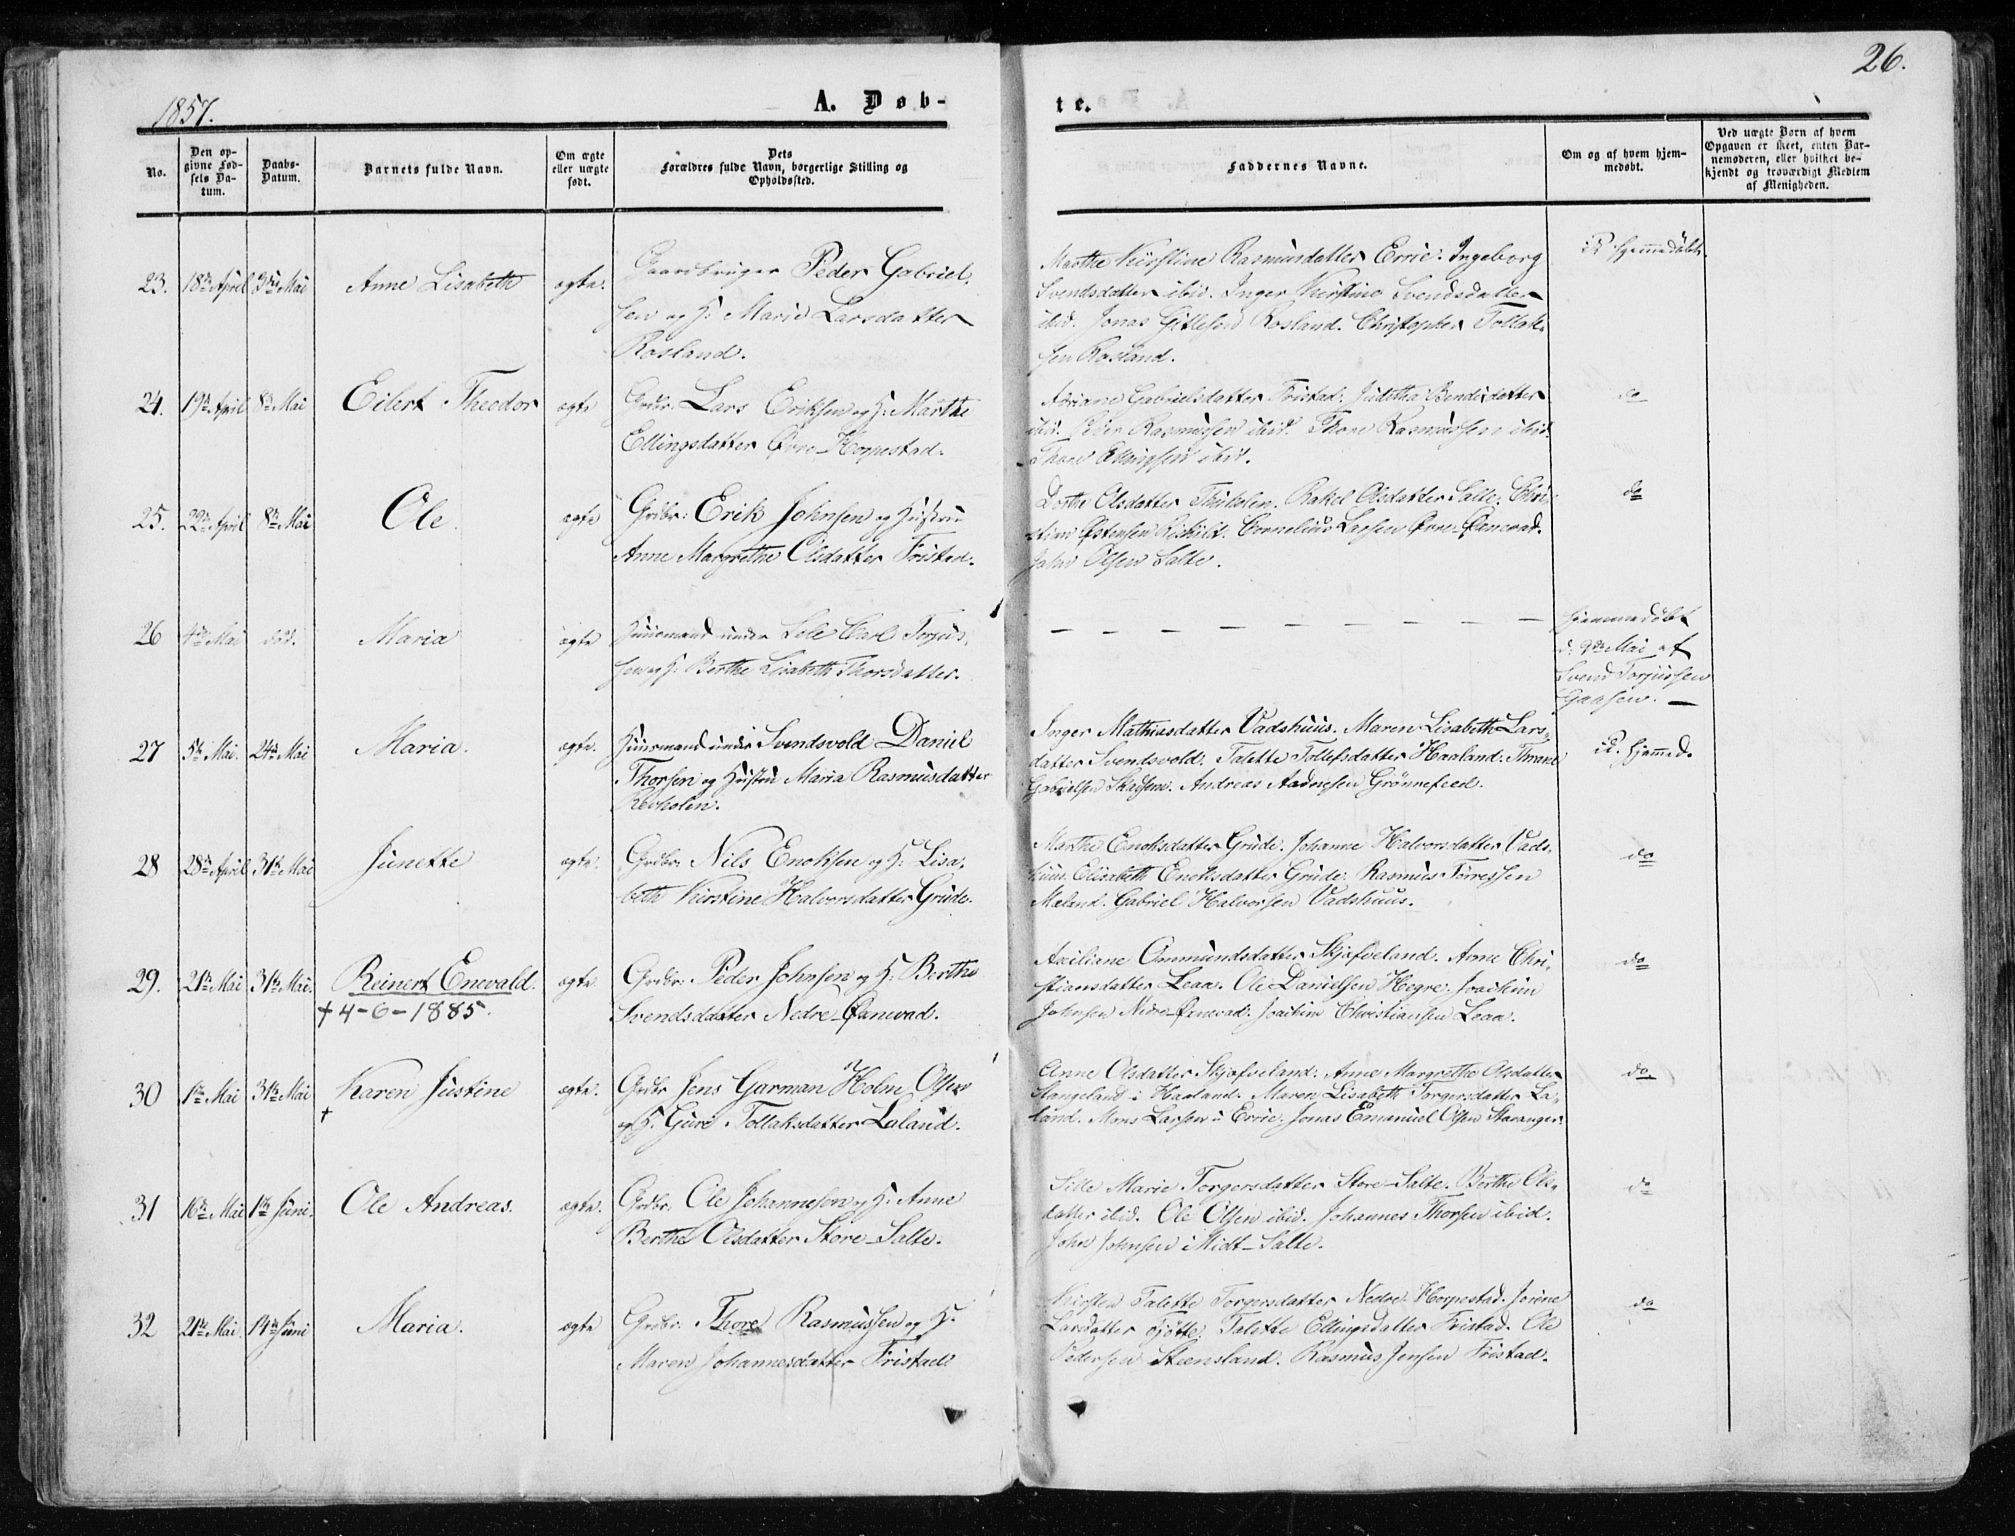 26.
1857.
A. Døb-
te.
No.
Den op-
givne Fød-
sels Da-
tum.
Daabs-
Datum.
Barnets fulde Navn.
Om ægte
eller uægte
født.
Dets
Forældres fulde Navn, borgerlige Stilling og
Opholdssted.
Faddernes Navne.
Om og af hvem hjem-
medøbt.
Ved uægte Børn af hvem
Opgaven er skeet, enten Bar-
nemoderen, eller hvilket be-
kjendt og troværdigt Medlem
af Menigheden.
23. 18de April 3die Mai Anne Lisabeth ægte.
Gaardbruger Peder Gabriel-
sen og H: Marie Larsdatter
Rosland.
Marthe Kirstine Rasmusdatter Errie. Ingeborg
Svendsdatter ibid. Inger Kirstine Svendsdatter
ibid. Jonas Gitlesen Rosland. Christopher Tollak-
sen Rosland.
Hjemmedøbt.
24. 19de April 8de Mai Eilert Theodor ægte
Grdbr. Lars Eriksen og H: Marthe
Ellingsdatter Øvre-Horpestad.
Adriane Gabrielsdatter Fristad. Juditha Bendixdatter
ibid. Peder Rasmussen ibid. Thore Rasmussen ibid.
Thore Ellingsen ibid.
do
25. 22de April 8de Mai Ole. ægte
Grdbr: Erik Johnsen og Hustru
Anne Margrethe Olsdatter Fristad.
Dorthe Olsdatter Rakel Olsdatter Salte. Chri-
stian Østensen Cornelius Larsen Øvre-Øxnevad.
John Olsen Salte.
do
26 4de Mai død. Maria ægte
Huusmand under Lele Carl Torjus-
sen og H: Berthe Lisabeth Thorsdatter.
Hjemmedøbt
d. 9de Mai af
Svend Torjussen
27 5te Mai. 24de Mai Maria. ægte.
Huusmand under Svendsvold Daniel
Thorsen og Hustru Maria Rasmusdatter
Revholen.
Inger Mathiasdatter Vadshuus. Maren Lisabeth Lars-
datter Svendsvold. Talette Tollefsdatter Haaland.
Gabrielsen Andreas Aadnesen Grønnefeed.
Hjemmed.
28 28de April 31te Mai Junette ægte.
Grdbr. Nils Enoksen og H: Lisa-
beth Kirstine Halvorsdatter Grude.
Marthe Enoksdatter Grude. Johanne Halvorsdatter Vads-
huus. Elisabeth Enoksdatter Grude. Rasmus Torressen
Meland. Gabriel Halvorsen Vadshuus.
do
29. 21de Mai 31te Mai. Reinert Enevald. ægte.
† 4-6-1885.
Grdbr: Peder Johnsen og H: Berthe
Svendsdatter Nedre-Øxnevad.
Axeliane Ommundsdatter Skjæfveland. Anne Chri-
stiansdatter Leaa. Ole Danielsen Hegre. Joachim
Johnsen Nedre-Øxnevad. Joachim Christiansen Leaa.
do
30 1ste Mai 31te Mai Karen Justine ægte.
†
Grdbr Jens Garman Holm Olsen
og H: Guro Tollaksdatter Laland.
Anne Olsdatter Skjæfveland. Anne Margrethe Olsdatter
Stangeland i Haaland. Maren Lisabeth Torgersdatter La-
land. Mons Larsen i Errie. Jonas Emanuel Olsen Stavanger.
do
31 16de Mai 1ste Juni. Ole Andreas. ægte.
Grdbr. Ole Johannesen og H: Anne
Berthe Olsdatter Store-Salte.
Sille Marie Torgersdatter Store-Salte. Berthe Ols-
datter ibid. Ole Olsen ibid. Johannes Thorsen ibid.
John Johnsen i Midt-Salte.
do
32 21de Mai. 14de Juni Maria. ægte
Grdbr: Thore Rasmussen og H:
Maren Johannesdatter Fristad.
Kirsten Talette Torgersdatter Nedre Horpestad. Jorine
Larsdatter Sjøtte. Talette Ellingsdatter Fristad. Ole
Pedersen Steensland. Rasmus Jensen Fristad.
do